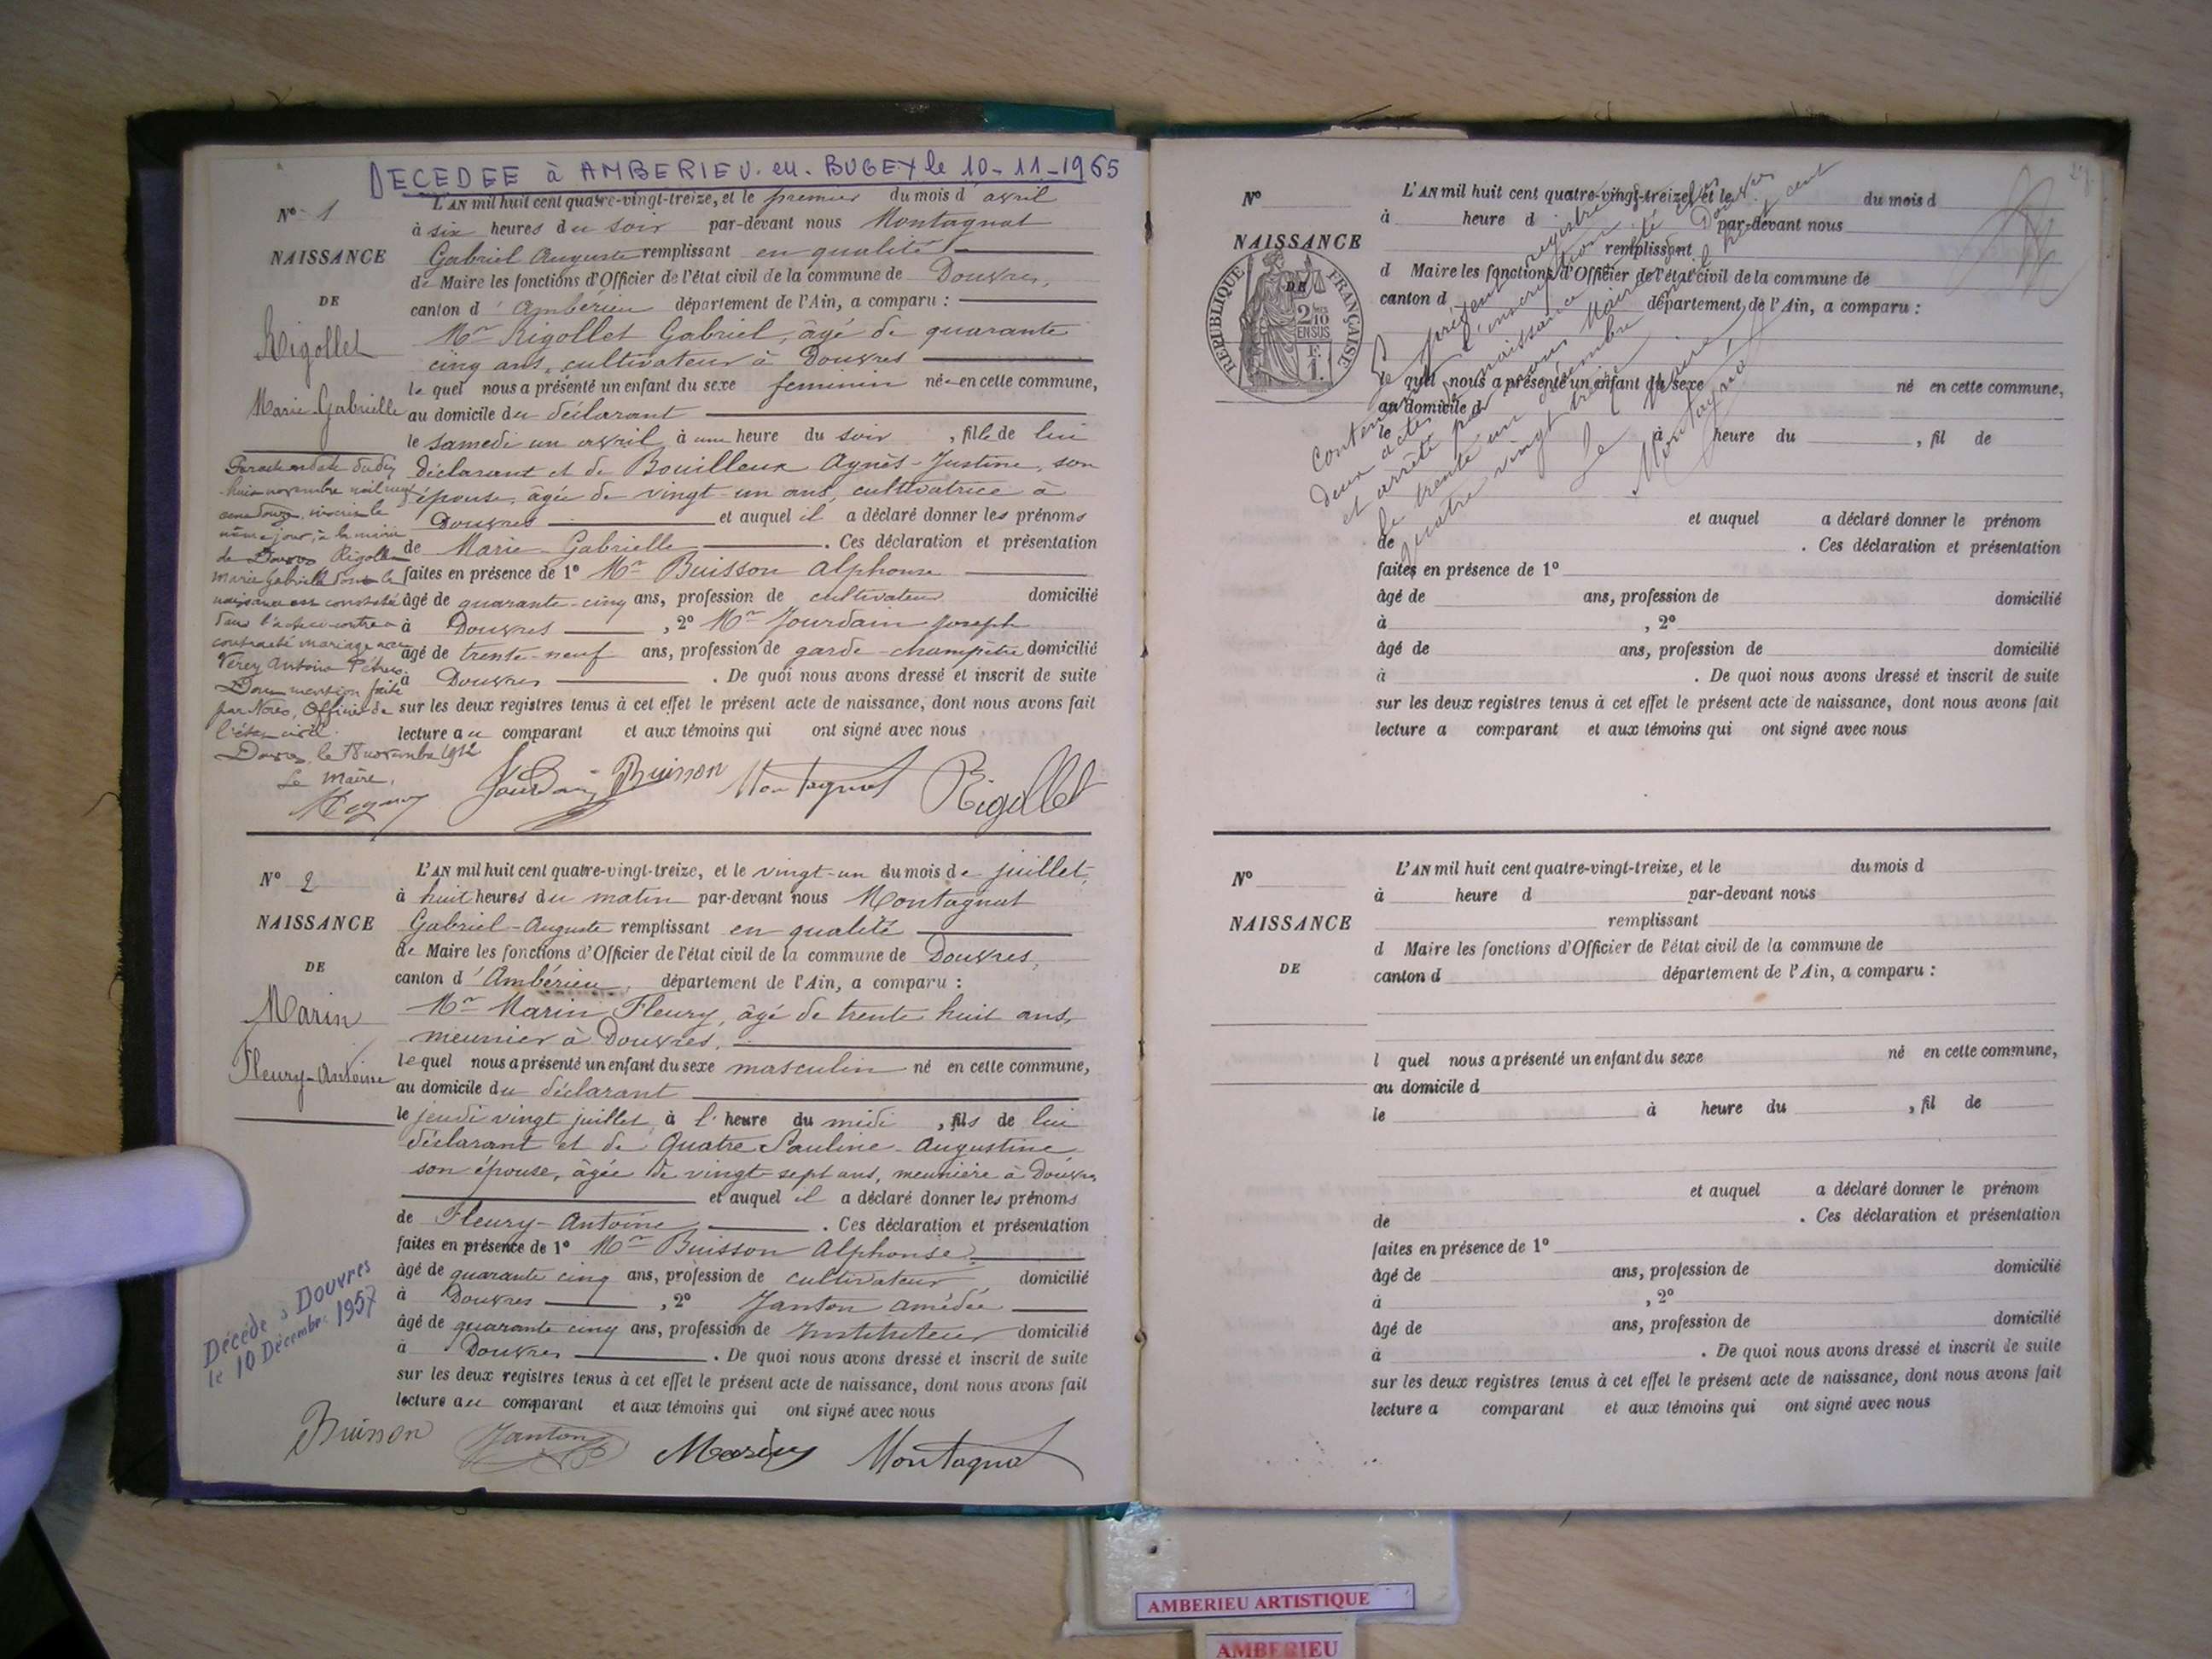 DECEDEE à AMBERIEU. en. BUGEY le 10-11-1965
N° 1
NAISSANCE
DE
Rigollet
Marie-Gabrielle
L'AN mil huit cent quatre-vingt-treize, et le premier du mois d'avril
à six heures du soir par-devant nous Montagnat
Gabriel Auguste remplissant en qualité
de Maire les fonctions d'Officier de l'état civil de la commune de Douvres,
canton d'Ambérieu département de l'Ain, a comparu :
Mr Rigollet Gabriel, âgé de quarante
cinq ans, cultivateur à Douvres
lequel nous a présenté un enfant du sexe feminin née en cette commune,
au domicile du déclarant
le samedi un avril à une heure du soir, fille de lui
déclarant et de Bouilleux Agnès-Justine, son
épouse, âgée de vingt-un ans, cultivatrice à
Douvres et auquel il a déclaré donner les prénoms
de Marie-Gabrielle. Ces déclaration et présentation
faites en présence de 1° Mr Buisson Alphonse
âgé de quarante-cinq ans, profession de cultivateur domicilié
à Douvres, 2° Mr Jourdain Joseph
âgé de trente-neuf ans, profession de garde-champêtre domicilié
à Douvres. De quoi nous avons dressé et inscrit de suite
sur les deux registres tenus à cet effet le présent acte de naissance, dont nous avons fait
lecture au comparant et aux témoins qui ont signé avec nous
Par acte en date du dix
huit novembre mil neuf
cent douze, inscrit le
même jour, à la mairie
de Douvres Rigollet
Marie Gabrielle dont la
naissance est constatée
dans l'acte ci-contre a
contracté mariage avec
Antoine
Dont mention faite
par Nous, Officier de
l'état civil.
Douvres, le 18 novembre 1912
Le Maire,
Jourdain Buisson Montagnat Rigollet
N° 2
NAISSANCE
DE
Marin
Fleury-Antoine
L'AN mil huit cent quatre-vingt-treize, et le vingt-un du mois de juillet,
à huit heures du matin par-devant nous Montagnat
Gabriel-Auguste remplissant en qualité
de Maire les fonctions d'Officier de l'état civil de la commune de Douvres,
canton d'Ambérieu, département de l'Ain, a comparu :
Mr Marin Fleury, âgé de trente huit ans,
meunier à Douvres,
lequel nous a présenté un enfant du sexe masculin né en cette commune,
au domicile du déclarant
le jeudi vingt juillet à l'heure du midi, fils de lui
déclarant et de Quatre Pauline-Augustine
son épouse, âgée de vingt-sept ans, meunière à Douvres
et auquel il a déclaré donner les prénoms
de Fleury-Antoine. Ces déclaration et présentation
faites en présence de 1° Mr Buisson Alphonse,
âgé de quarante cinq ans, profession de cultivateur domicilié
à Douvres, 2° Janton Amédée
âgé de quarante cinq ans, profession de Instituteur domicilié
à Douvres. De quoi nous avons dressé et inscrit de suite
sur les deux registres tenus à cet effet le présent acte de naissance, dont nous avons fait
lecture au comparant et aux témoins qui ont signé avec nous
Décédé à Douvres
le 10 Décembre 1957
Buisson Janton Marin Montagnat
N°
NAISSANCE
DE
REPUBLIQUE FRANÇAISE
2/10 EN SUS
L'AN mil huit cent quatre-vingt-treize, et le du mois d
à heure d par-devant nous
remplissant
d Maire les fonctions d'Officier de l'état civil de la commune de
canton d département de l'Ain, a comparu :
le quel nous a présenté un enfant du sexe né en cette commune,
au domicile d
le à heure du , fil de
et auquel a déclaré donner le prénom
de . Ces déclaration et présentation
faites en présence de 1°
âgé de ans, profession de domicilié
à , 2°
âgé de ans, profession de domicilié
à . De quoi nous avons dressé et inscrit de suite
sur les deux registres tenus à cet effet le présent acte de naissance, dont nous avons fait
lecture a comparant et aux témoins qui ont signé avec nous
Le présent registre
contenant l'inscription de
deux actes de naissance a été clos
et arrêté par nous Maire de Douvres
le trente un décembre mil huit cent
quatre vingt treize
Le Maire,
Montagnat
N°
NAISSANCE
DE
L'AN mil huit cent quatre-vingt-treize, et le du mois d
à heure d par-devant nous
remplissant
d Maire les fonctions d'Officier de l'état civil de la commune de
canton d département de l'Ain, a comparu :
l quel nous a présenté un enfant du sexe né en cette commune,
au domicile d
le à heure du , fil de
et auquel a déclaré donner le prénom
de . Ces déclaration et présentation
faites en présence de 1°
âgé de ans, profession de domicilié
à , 2°
âgé de ans, profession de domicilié
à . De quoi nous avons dressé et inscrit de suite
sur les deux registres tenus à cet effet le présent acte de naissance, dont nous avons fait
lecture a comparant et aux témoins qui ont signé avec nous
AMBERIEU ARTISTIQUE
AMBERIEU